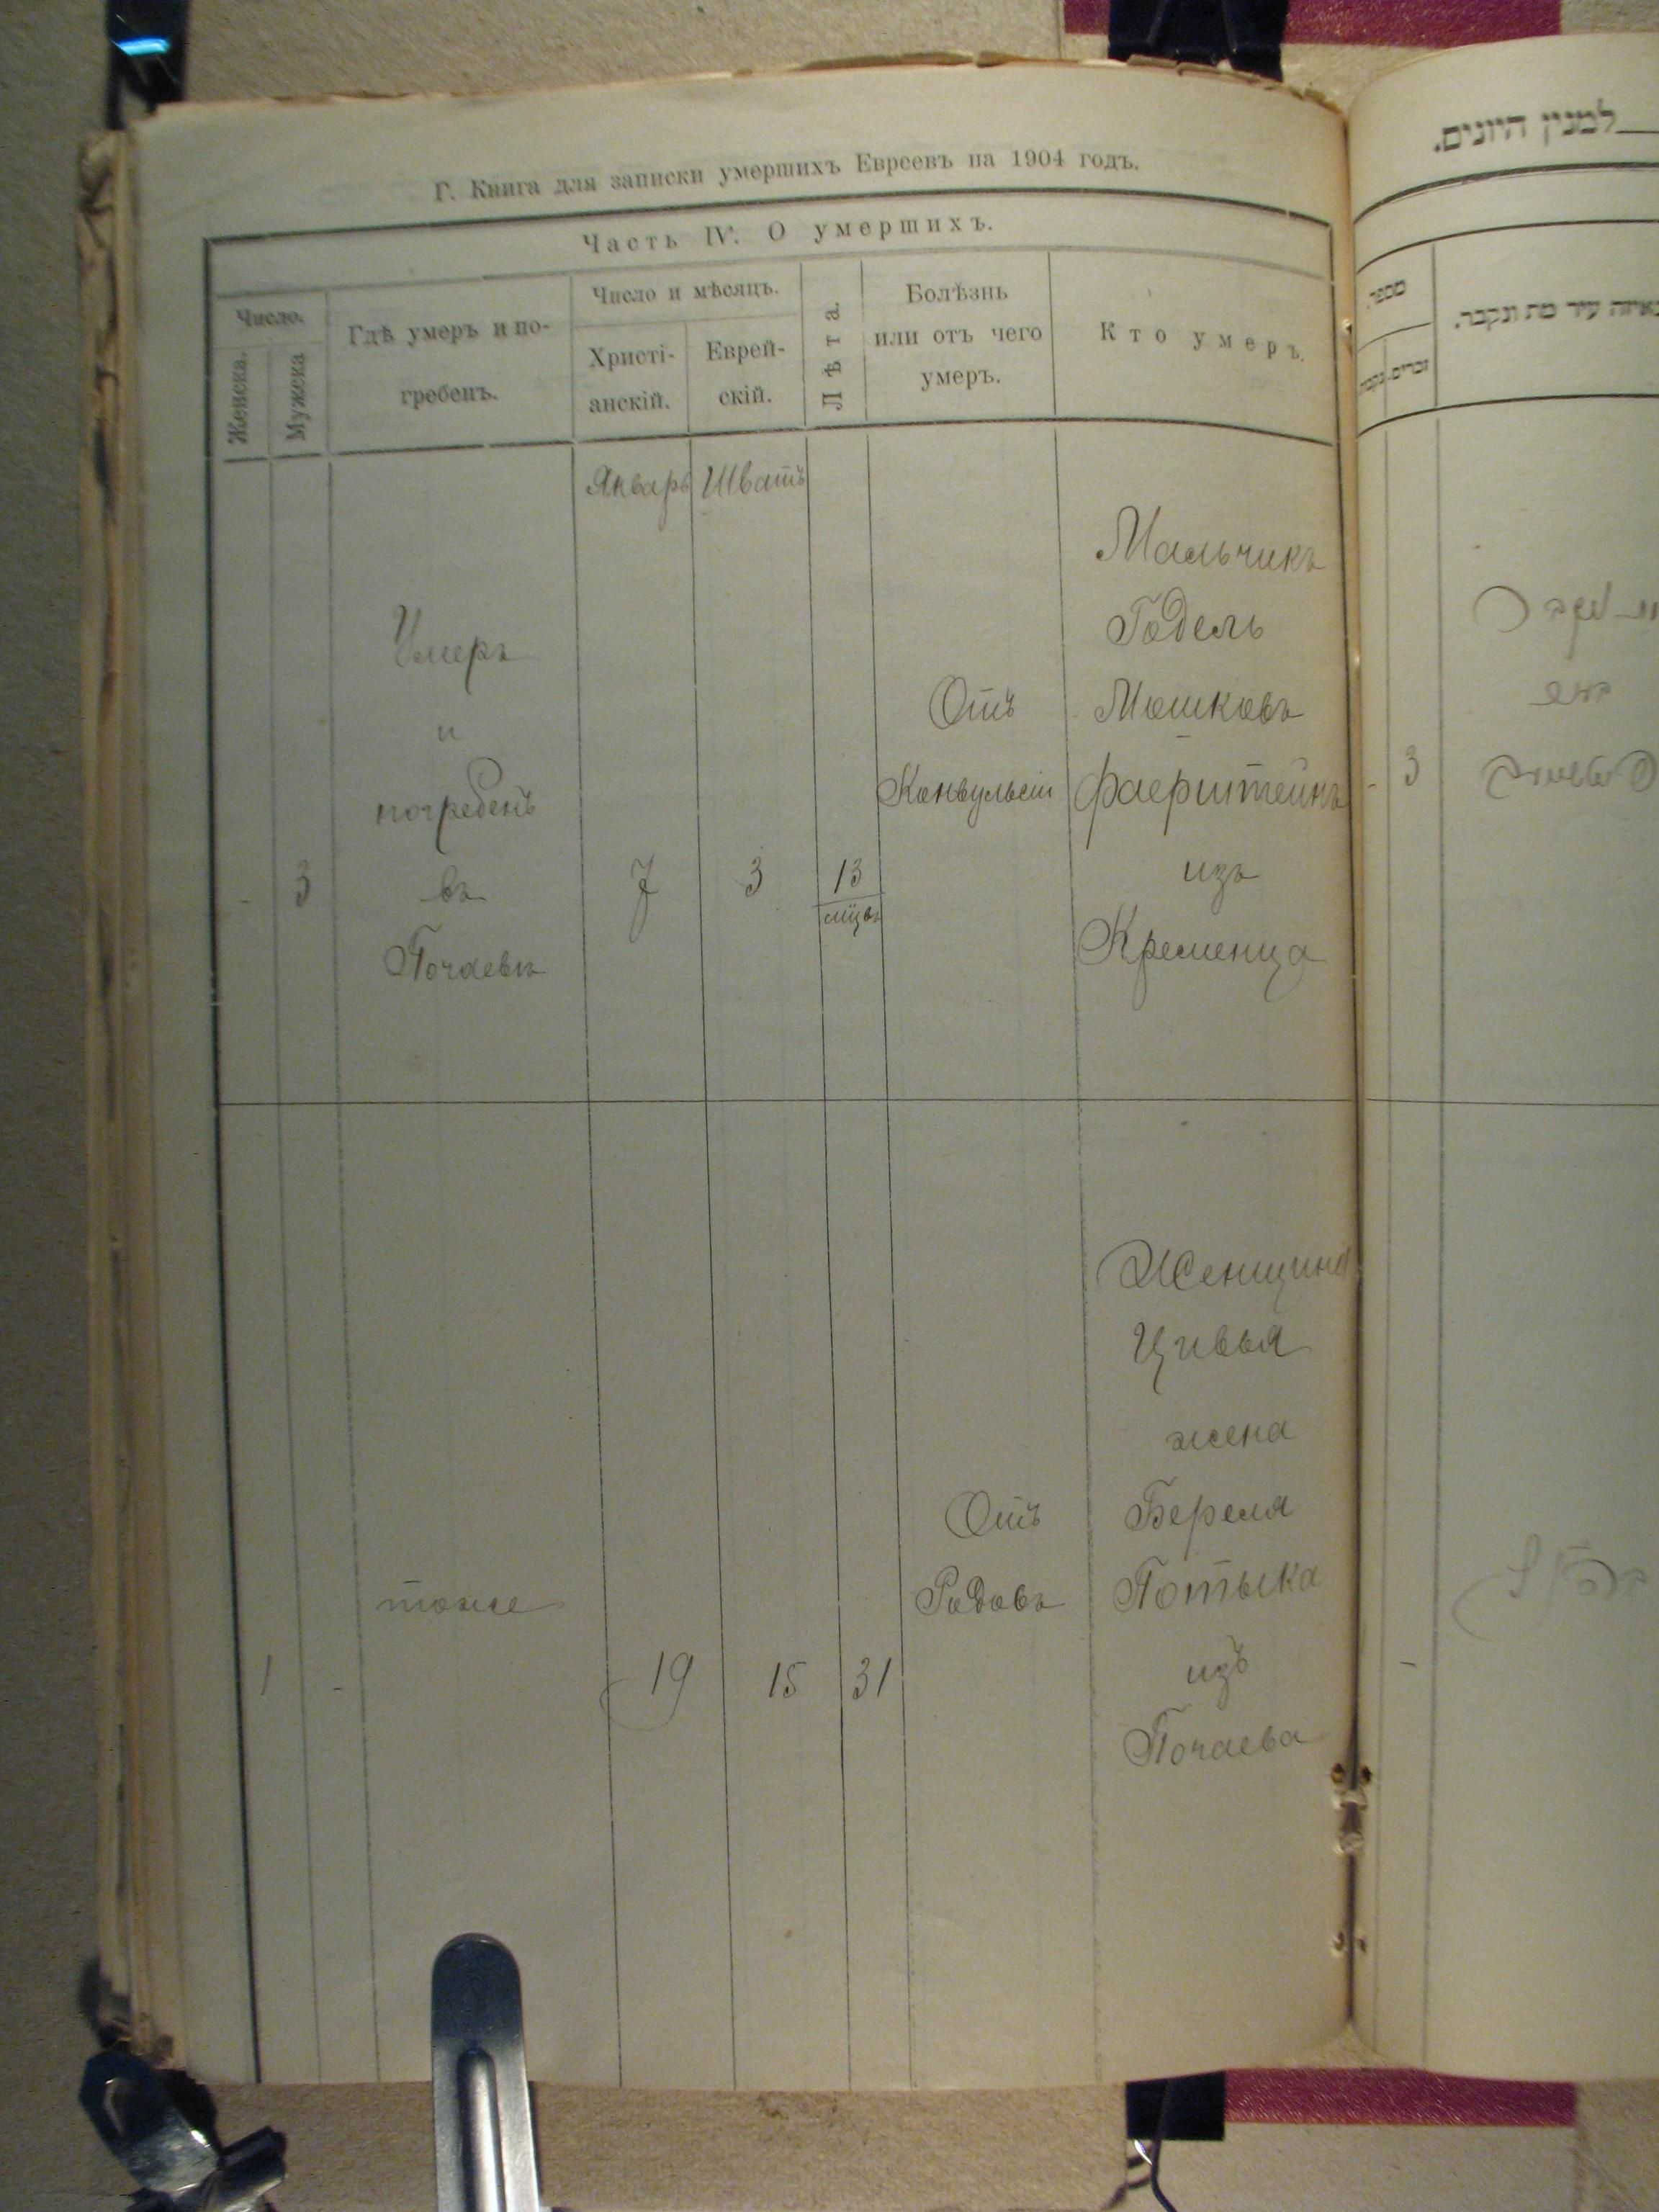 Г. Книга для записки умершихъ Евреевъ на 1904 годъ.
Часть IV. О умершихъ.
Число.
Женска.
Мужеска
Гдѣ умеръ и по-
гребенъ.
Число и мѣсяцъ.
Христі-
анскій.
Еврей-
скій.
Лѣта.
Болѣзнь
или отъ чего
умеръ.
Кто умеръ.
Январь
Шватъ
-
3
Умеръ
и
погребенъ
въ
Почаевѣ
7
3
13
мцвъ
Отъ
Конвульсіи
Мальчикъ
Годель
Мошковъ
Фаерштейнъ
изъ
Кременца
1
-
тоже
19
15
31
Отъ
Родовъ
Женщина
Цивья
жена
Береля
Потыка
изъ
Почаева
למנין היונים.
מספר
זכרים.
באיזה עיר מת ונקבר.
-
3
-